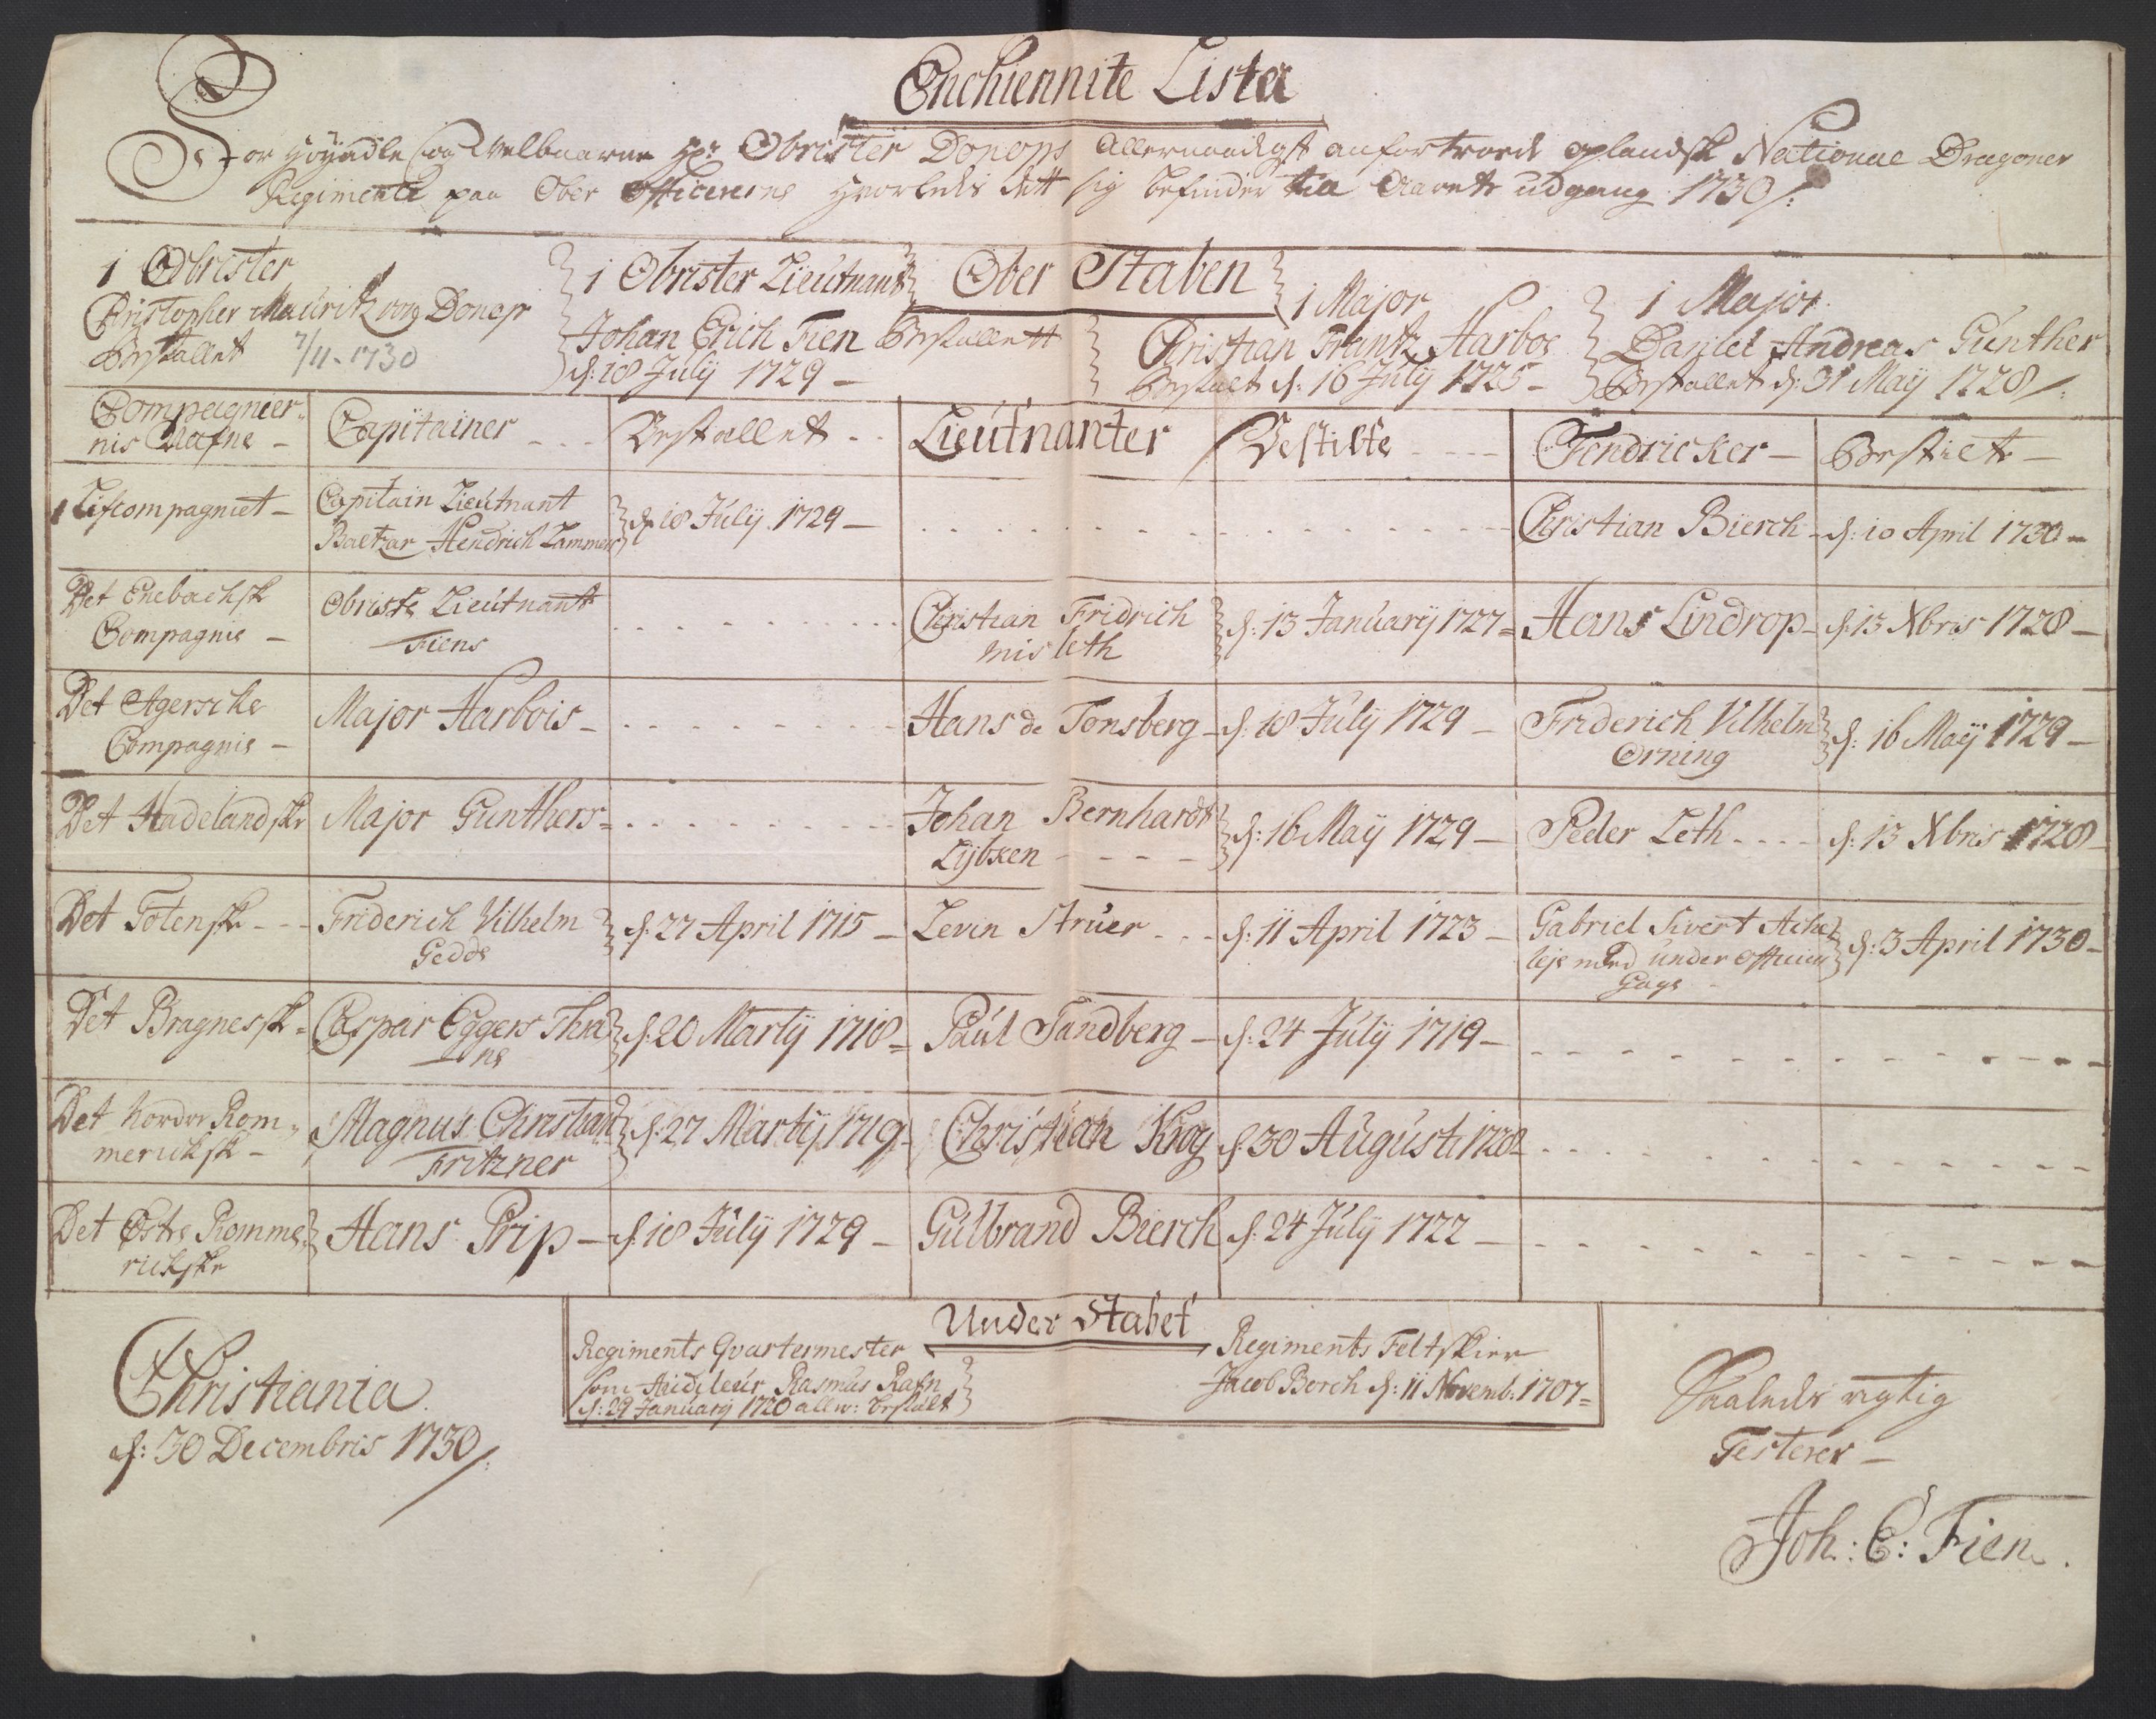 Enchiennite Lista
For Høyædle og Velbaarne Hr: Obrister Donops Allernaadigst anfortroede oplandsk National Dragoner
Regimente paa Ober Officererne hvorledis dett sig befinder till Aarets udgang 1730/:
Ober Staben
1 Obrister
Christopher Mauritz von Donop
Bestallet 7/11-1730
1 Obrister Lieutnant
Johan Erich Fien Bestallett
d: 18 Julij 1729 -
1 Major
Christian Frantz Harboe
Bestalt d: 16 Julij 1725 -
1 Major
Daniel Andreas Günther
Bestallet d: 31 Maij 1728/:
Compagnier-
nis Nafne -
Capitainer - - -
Bestallet - -
Lieutnanter
Bestilte - - - -
Fendricker -
Bestilt -
1 Lifcompagniet -
Capitain Lieutnant
Baltzar Hendrich Lammers
d: 18 Julij 1729 -
Christian Bierch -
d: 10 April 1730 -
Det Enebachsk
Compagnie -
Obriste Lieutnant
Fiens
Christian Fridrich
Misleth
d: 13 Januarij 1727 =
Hans Lindrop -
d: 13 Xbris 1728 -
Det Agerscke
Compagnie -
Major Harbois -
Hans de Tonsberg -
d: 18 Julij 1729 -
Friderich Vilhelm
Orning
d: 16 Maij 1729 -
Det Hadelandske
Major Gunthers =
Johan Bernhardt
Lybken - - - -
d: 16 Maij 1729 -
Peder Leth - - - -
d: 13 Xbris 1728 -
Det Totenske - - -
Friderich Vilhelm
Gedde
d: 27 April 1715 -
Levin Struer - - -
d: 11 April 1723 -
Gabriel Sivert Ache
leje med under officier
Gage -
d: 3 April 1730 -
Det Bragnessk =
Caspar Eggers Thra
ne
d: 20 Martij 1718 =
Paul Sandberg -
d: 24 Julij 1719 -
Det Nordre Rom-
mericksk -
Magnus Christian
Fritzner
d: 27 Martij 1719 -
Christian Krog
d: 30 Augusti 1728 -
Det Østre Romme-
rickske
Hans Prip -
d: 18 Julij 1729 -
Gulbrand Bierch
d: 24 Julij 1722 -
Under Stabet
Regiments Qvartermester
som Auditeur Rasmus Rafn
d: 29 Januarij 1720 allern: bestalt
Regiments Feltskier
Jacob Borch d: 11 Novemb: 1707 =
Christiania
d: 30 Decembris 1730/:
Saaledes rigtig
Testerer -
Joh: E: Fien.